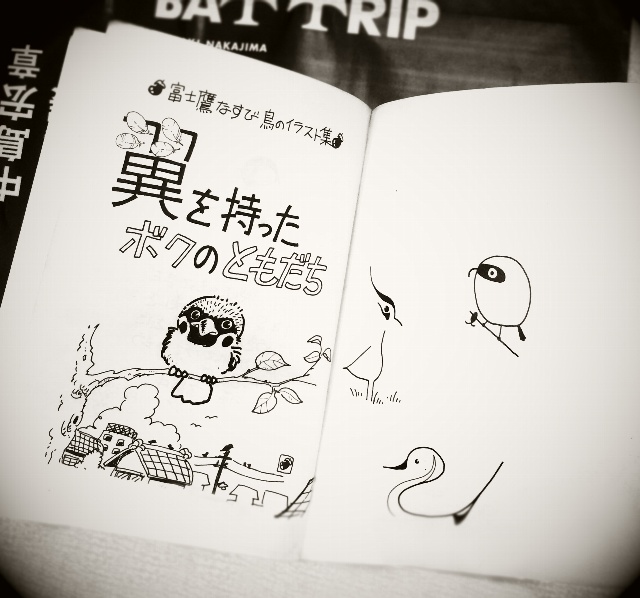 BATTRIP
NAKAJIMA
中島宏章
富士鷹なすび 鳥のイラスト集
翼を持った
ボクのともだち